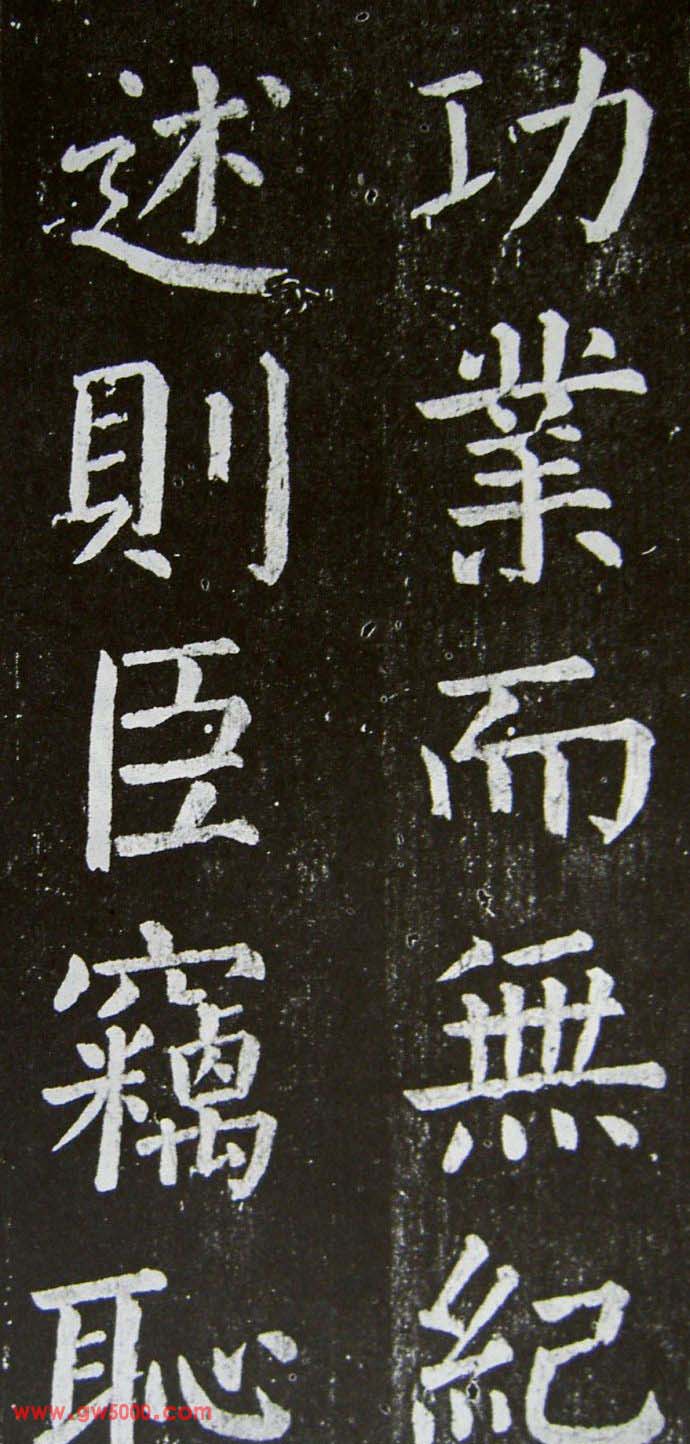 功業而無紀
述則臣竊恥
www.gw5000.com